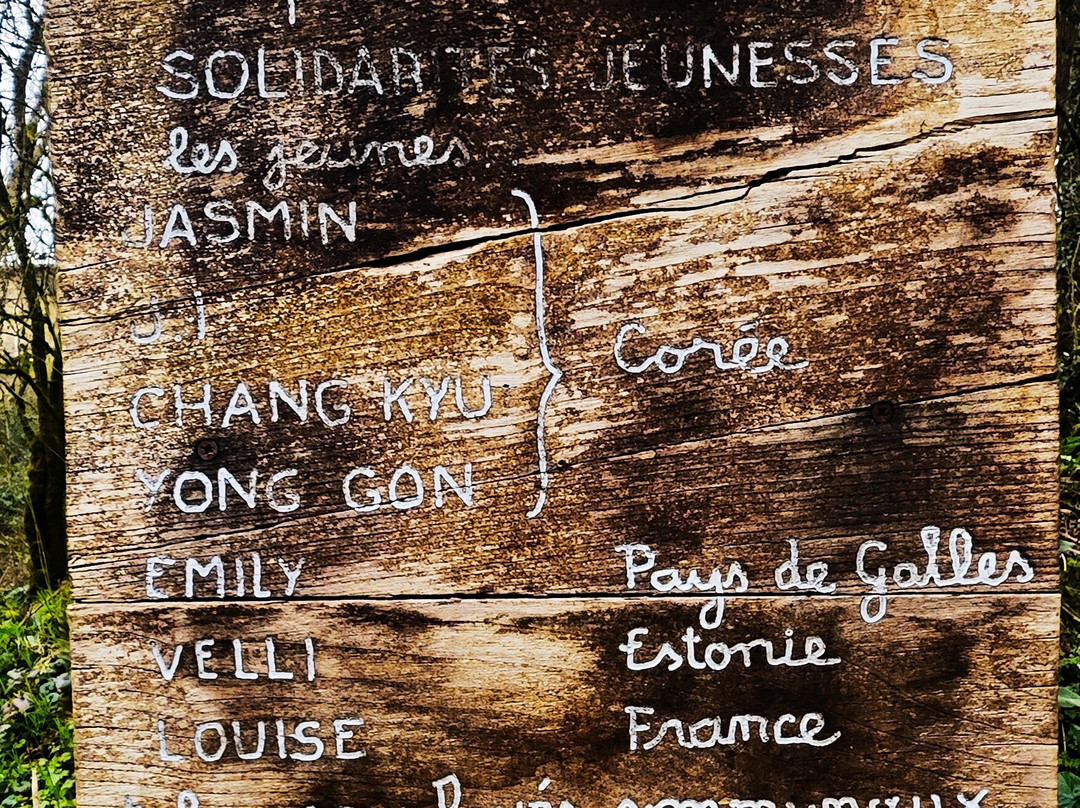 SOLIDARITÉS JEUNESSES
les jeunes
JASMIN
J.I
CHANG KYU
YONG GON
Corée
EMILY Pays de Galles
VELLI Estonie
LOUISE France